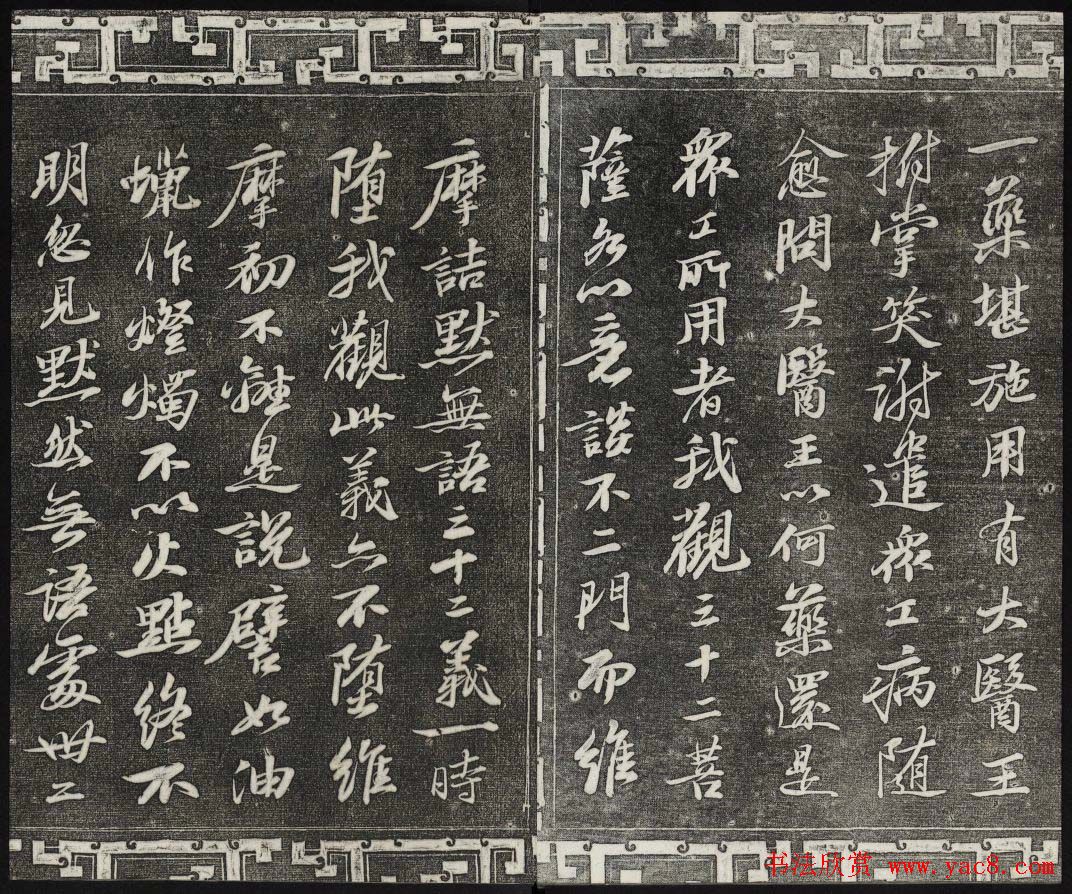 一藥堪施用有大醫王
拊掌笑謝遣衆工病随
愈問大醫王以何藥還是
衆工所用者我觀三十二菩
薩各以意談不二門而維
摩詰默無語三十二義一時
堕我觀此義亦不堕維
摩初不離是說譬如油
蠟作燈燭不以火點終不
明忽見默然無語處卅二
书法欣赏 www.yac8.com